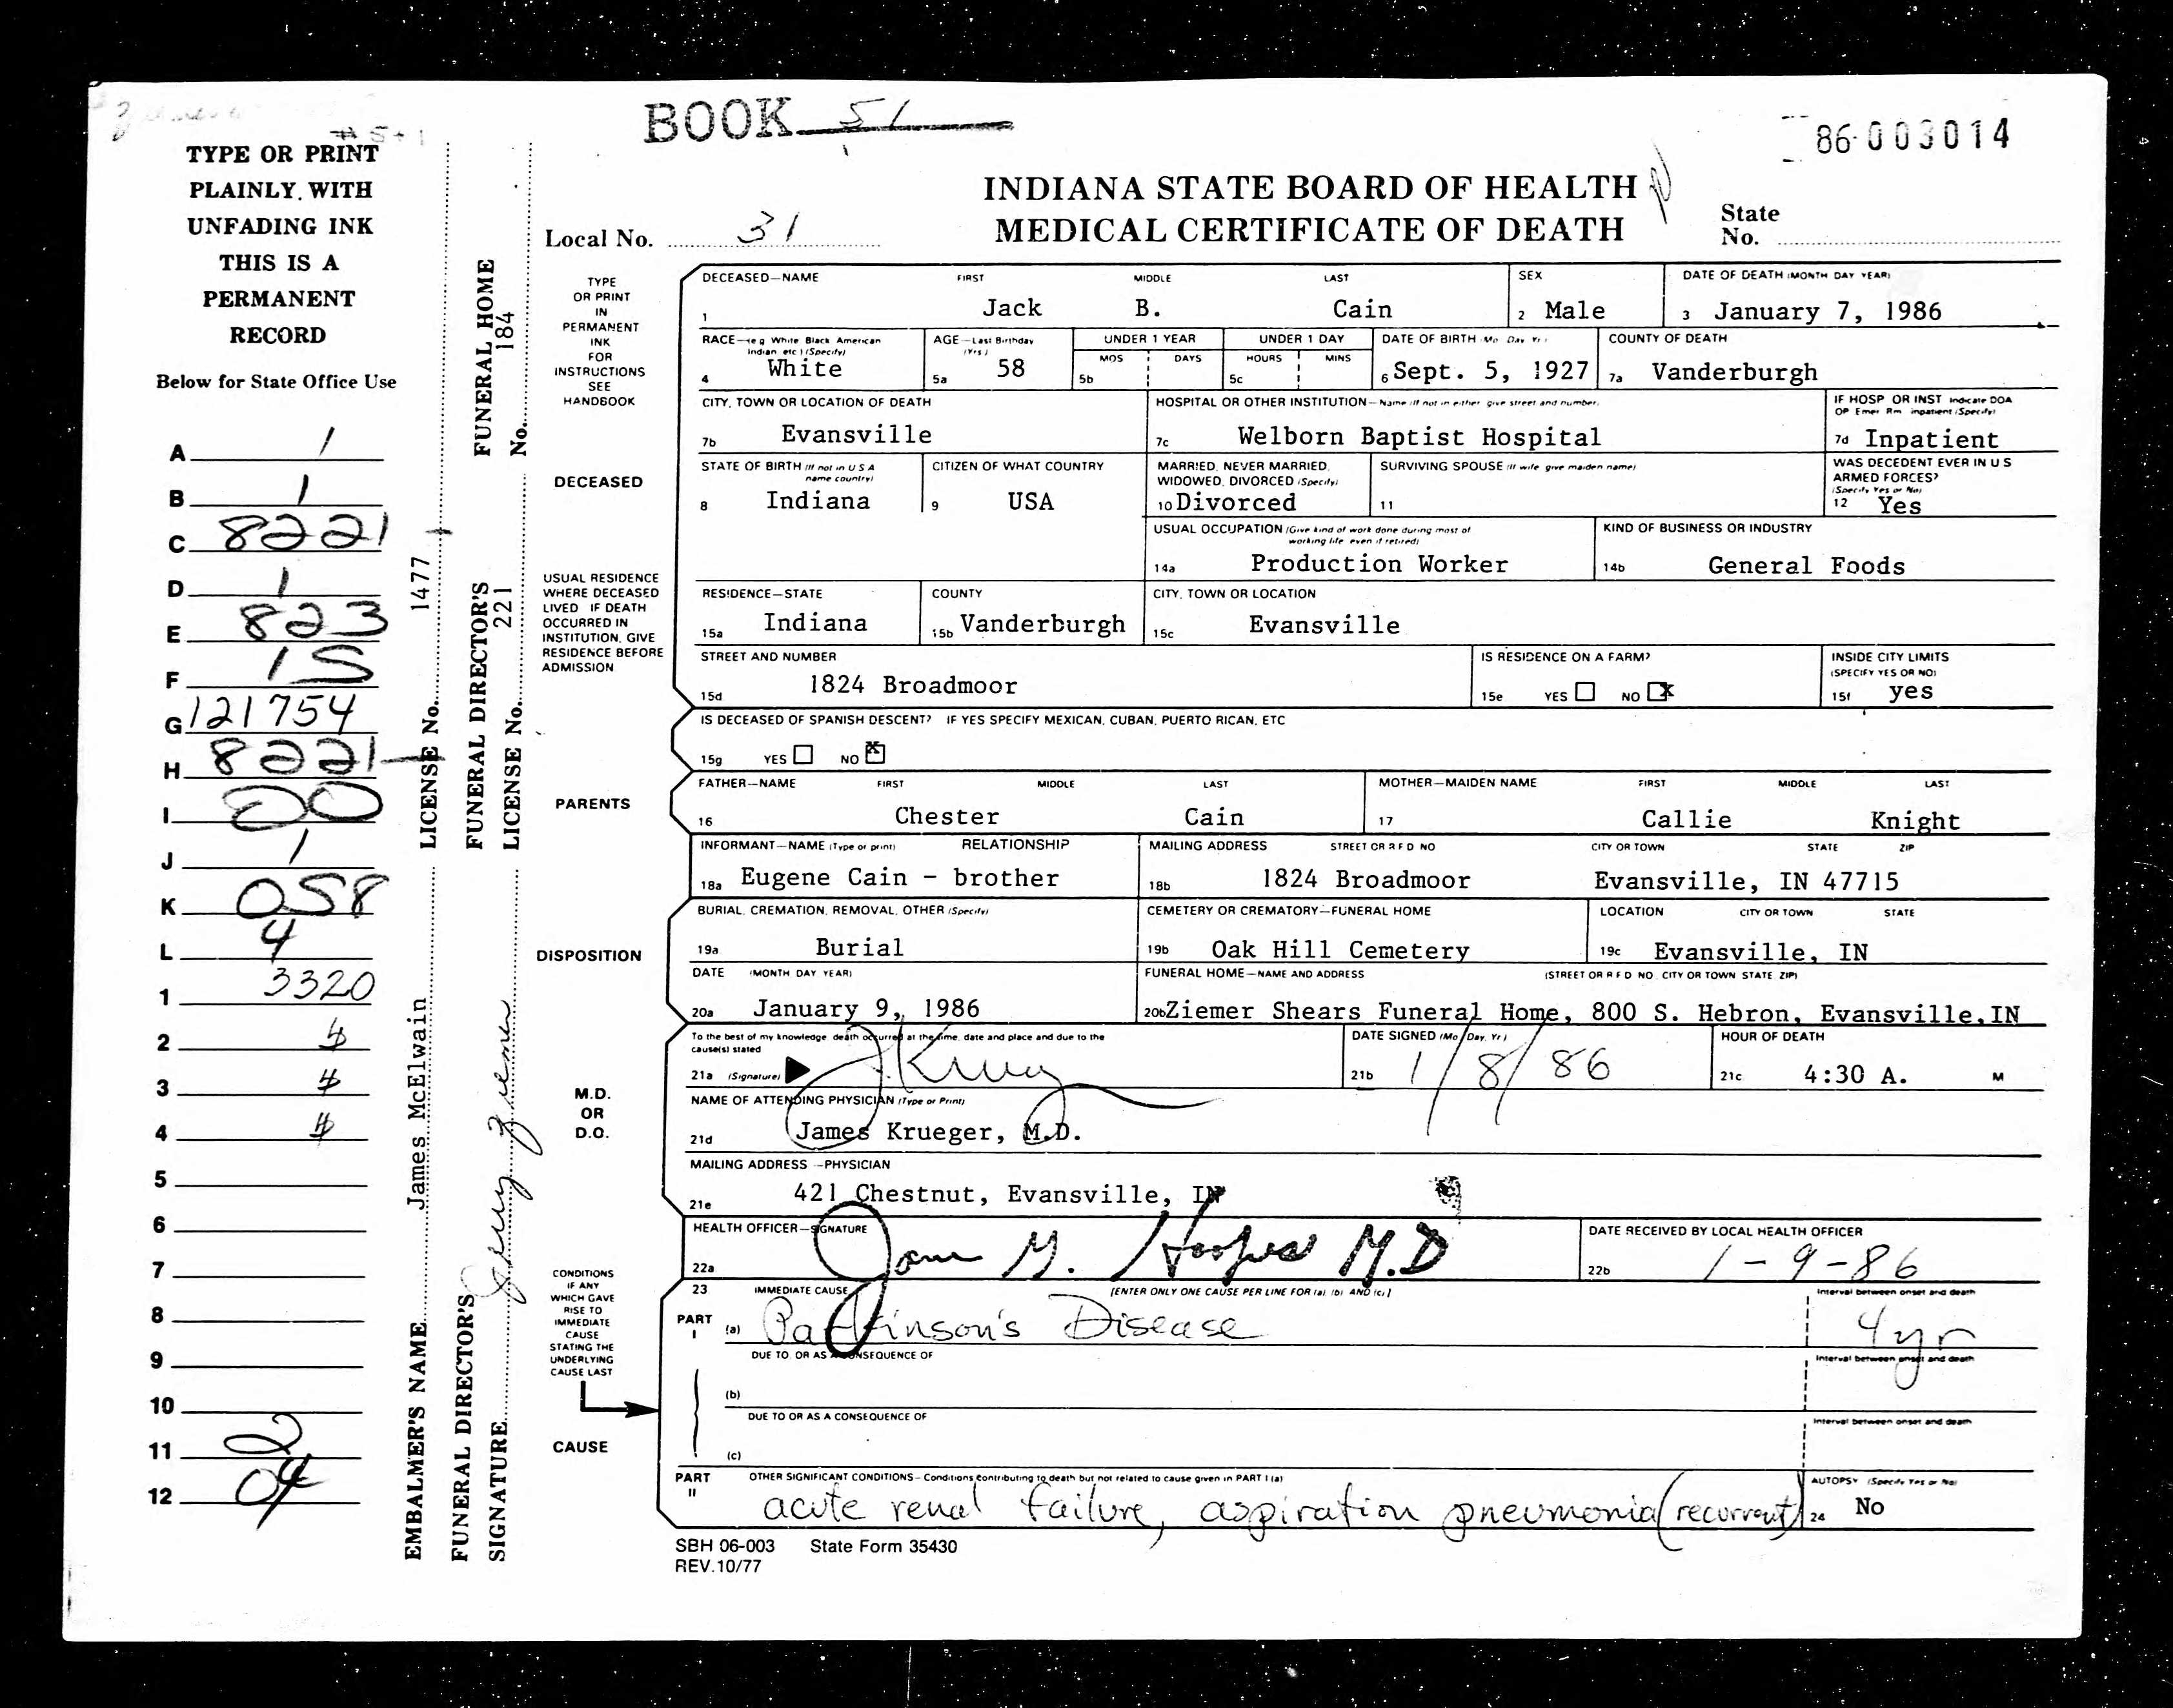 BOOK 51
86-003014
TYPE OR PRINT
PLAINLY, WITH
UNFADING INK
THIS IS A
PERMANENT
RECORD
Below for State Office Use
A 1
B 1
C 8221
D 1
E 823
F 15
G 121754
H 8221
I 00
J 1
K 058
L 4
1 3320
2 4
3 4
4 4
5
6
7
8
9
10
11 2
12 04
EMBALMER'S NAME James McElwain LICENSE No. 1477
FUNERAL DIRECTOR'S SIGNATURE Jerry Ziemer
FUNERAL DIRECTOR'S LICENSE No. 221
FUNERAL HOME No. 184
INDIANA STATE BOARD OF HEALTH
MEDICAL CERTIFICATE OF DEATH
Local No. 31
State No.
TYPE
OR PRINT
IN
PERMANENT
INK
FOR
INSTRUCTIONS
SEE
HANDBOOK
DECEASED—NAME FIRST MIDDLE LAST SEX DATE OF DEATH (MONTH DAY YEAR)
1 Jack B. Cain 2 Male 3 January 7, 1986
RACE—(e g White Black American Indian etc) (Specify) AGE—Last Birthday (Yrs) UNDER 1 YEAR UNDER 1 DAY DATE OF BIRTH (Mo Day Yr) COUNTY OF DEATH
MOS DAYS HOURS MINS
4 White 5a 58 5b 5c 6 Sept. 5, 1927 7a Vanderburgh
CITY, TOWN OR LOCATION OF DEATH HOSPITAL OR OTHER INSTITUTION—Name (If not in either give street and number) IF HOSP OR INST Indicate DOA OP Emer Rm inpatient (Specify)
7b Evansville 7c Welborn Baptist Hospital 7d Inpatient
DECEASED
STATE OF BIRTH (If not in U S A name country) CITIZEN OF WHAT COUNTRY MARRIED, NEVER MARRIED, WIDOWED, DIVORCED (Specify) SURVIVING SPOUSE (If wife give maiden name) WAS DECEDENT EVER IN U S ARMED FORCES? (Specify Yes or No)
8 Indiana 9 USA 10 Divorced 11 12 Yes
USUAL OCCUPATION (Give kind of work done during most of working life even if retired) KIND OF BUSINESS OR INDUSTRY
14a Production Worker 14b General Foods
USUAL RESIDENCE
WHERE DECEASED
LIVED IF DEATH
OCCURRED IN
INSTITUTION, GIVE
RESIDENCE BEFORE
ADMISSION
RESIDENCE—STATE COUNTY CITY, TOWN OR LOCATION
15a Indiana 15b Vanderburgh 15c Evansville
STREET AND NUMBER IS RESIDENCE ON A FARM? INSIDE CITY LIMITS (SPECIFY YES OR NO)
15d 1824 Broadmoor 15e YES NO X 15f yes
IS DECEASED OF SPANISH DESCENT? IF YES SPECIFY MEXICAN, CUBAN, PUERTO RICAN, ETC
15g YES NO X
PARENTS
FATHER—NAME FIRST MIDDLE LAST MOTHER—MAIDEN NAME FIRST MIDDLE LAST
16 Chester Cain 17 Callie Knight
INFORMANT—NAME (Type or print) RELATIONSHIP MAILING ADDRESS STREET OR R F D NO CITY OR TOWN STATE ZIP
18a Eugene Cain - brother 18b 1824 Broadmoor Evansville, IN 47715
DISPOSITION
BURIAL, CREMATION, REMOVAL, OTHER (Specify) CEMETERY OR CREMATORY—FUNERAL HOME LOCATION CITY OR TOWN STATE
19a Burial 19b Oak Hill Cemetery 19c Evansville, IN
DATE (MONTH DAY YEAR) FUNERAL HOME—NAME AND ADDRESS (STREET OR R F D NO. CITY OR TOWN STATE ZIP)
20a January 9, 1986 20b Ziemer Shears Funeral Home, 800 S. Hebron, Evansville, IN
M.D.
OR
D.O.
To the best of my knowledge death occurred at the time, date and place and due to the cause(s) stated DATE SIGNED (Mo Day, Yr) HOUR OF DEATH
21a (Signature) 21b 1/8/86 21c 4:30 A. M
NAME OF ATTENDING PHYSICIAN (Type or Print)
21d James Krueger, M.D.
MAILING ADDRESS—PHYSICIAN
21e 421 Chestnut, Evansville, IN
HEALTH OFFICER—SIGNATURE DATE RECEIVED BY LOCAL HEALTH OFFICER
22a M.D 22b 1-9-86
CONDITIONS
IF ANY
WHICH GAVE
RISE TO
IMMEDIATE
CAUSE
STATING THE
UNDERLYING
CAUSE LAST
CAUSE
23 IMMEDIATE CAUSE [ENTER ONLY ONE CAUSE PER LINE FOR (a) (b) AND (c)] Interval between onset and death
PART I (a) Parkinson's Disease 4yr
DUE TO, OR AS A CONSEQUENCE OF Interval between onset and death
(b)
DUE TO OR AS A CONSEQUENCE OF Interval between onset and death
(c)
PART II OTHER SIGNIFICANT CONDITIONS—Conditions contributing to death but not related to cause given in PART I (a) AUTOPSY (Specify Yes or No)
acute renal failure, aspiration pneumonia (recurrent) 24 No
SBH 06-003 State Form 35430
REV.10/77